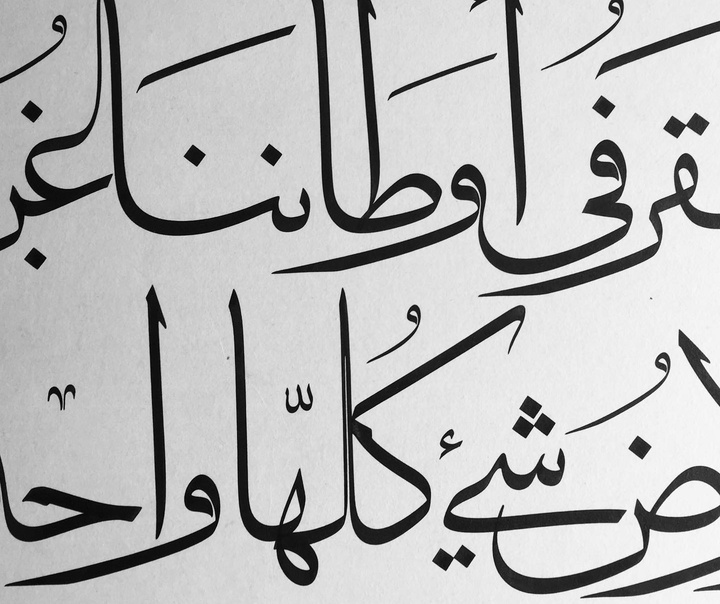 قرُ في أوطاننا غر
رضُ شيئ كُلّها واح